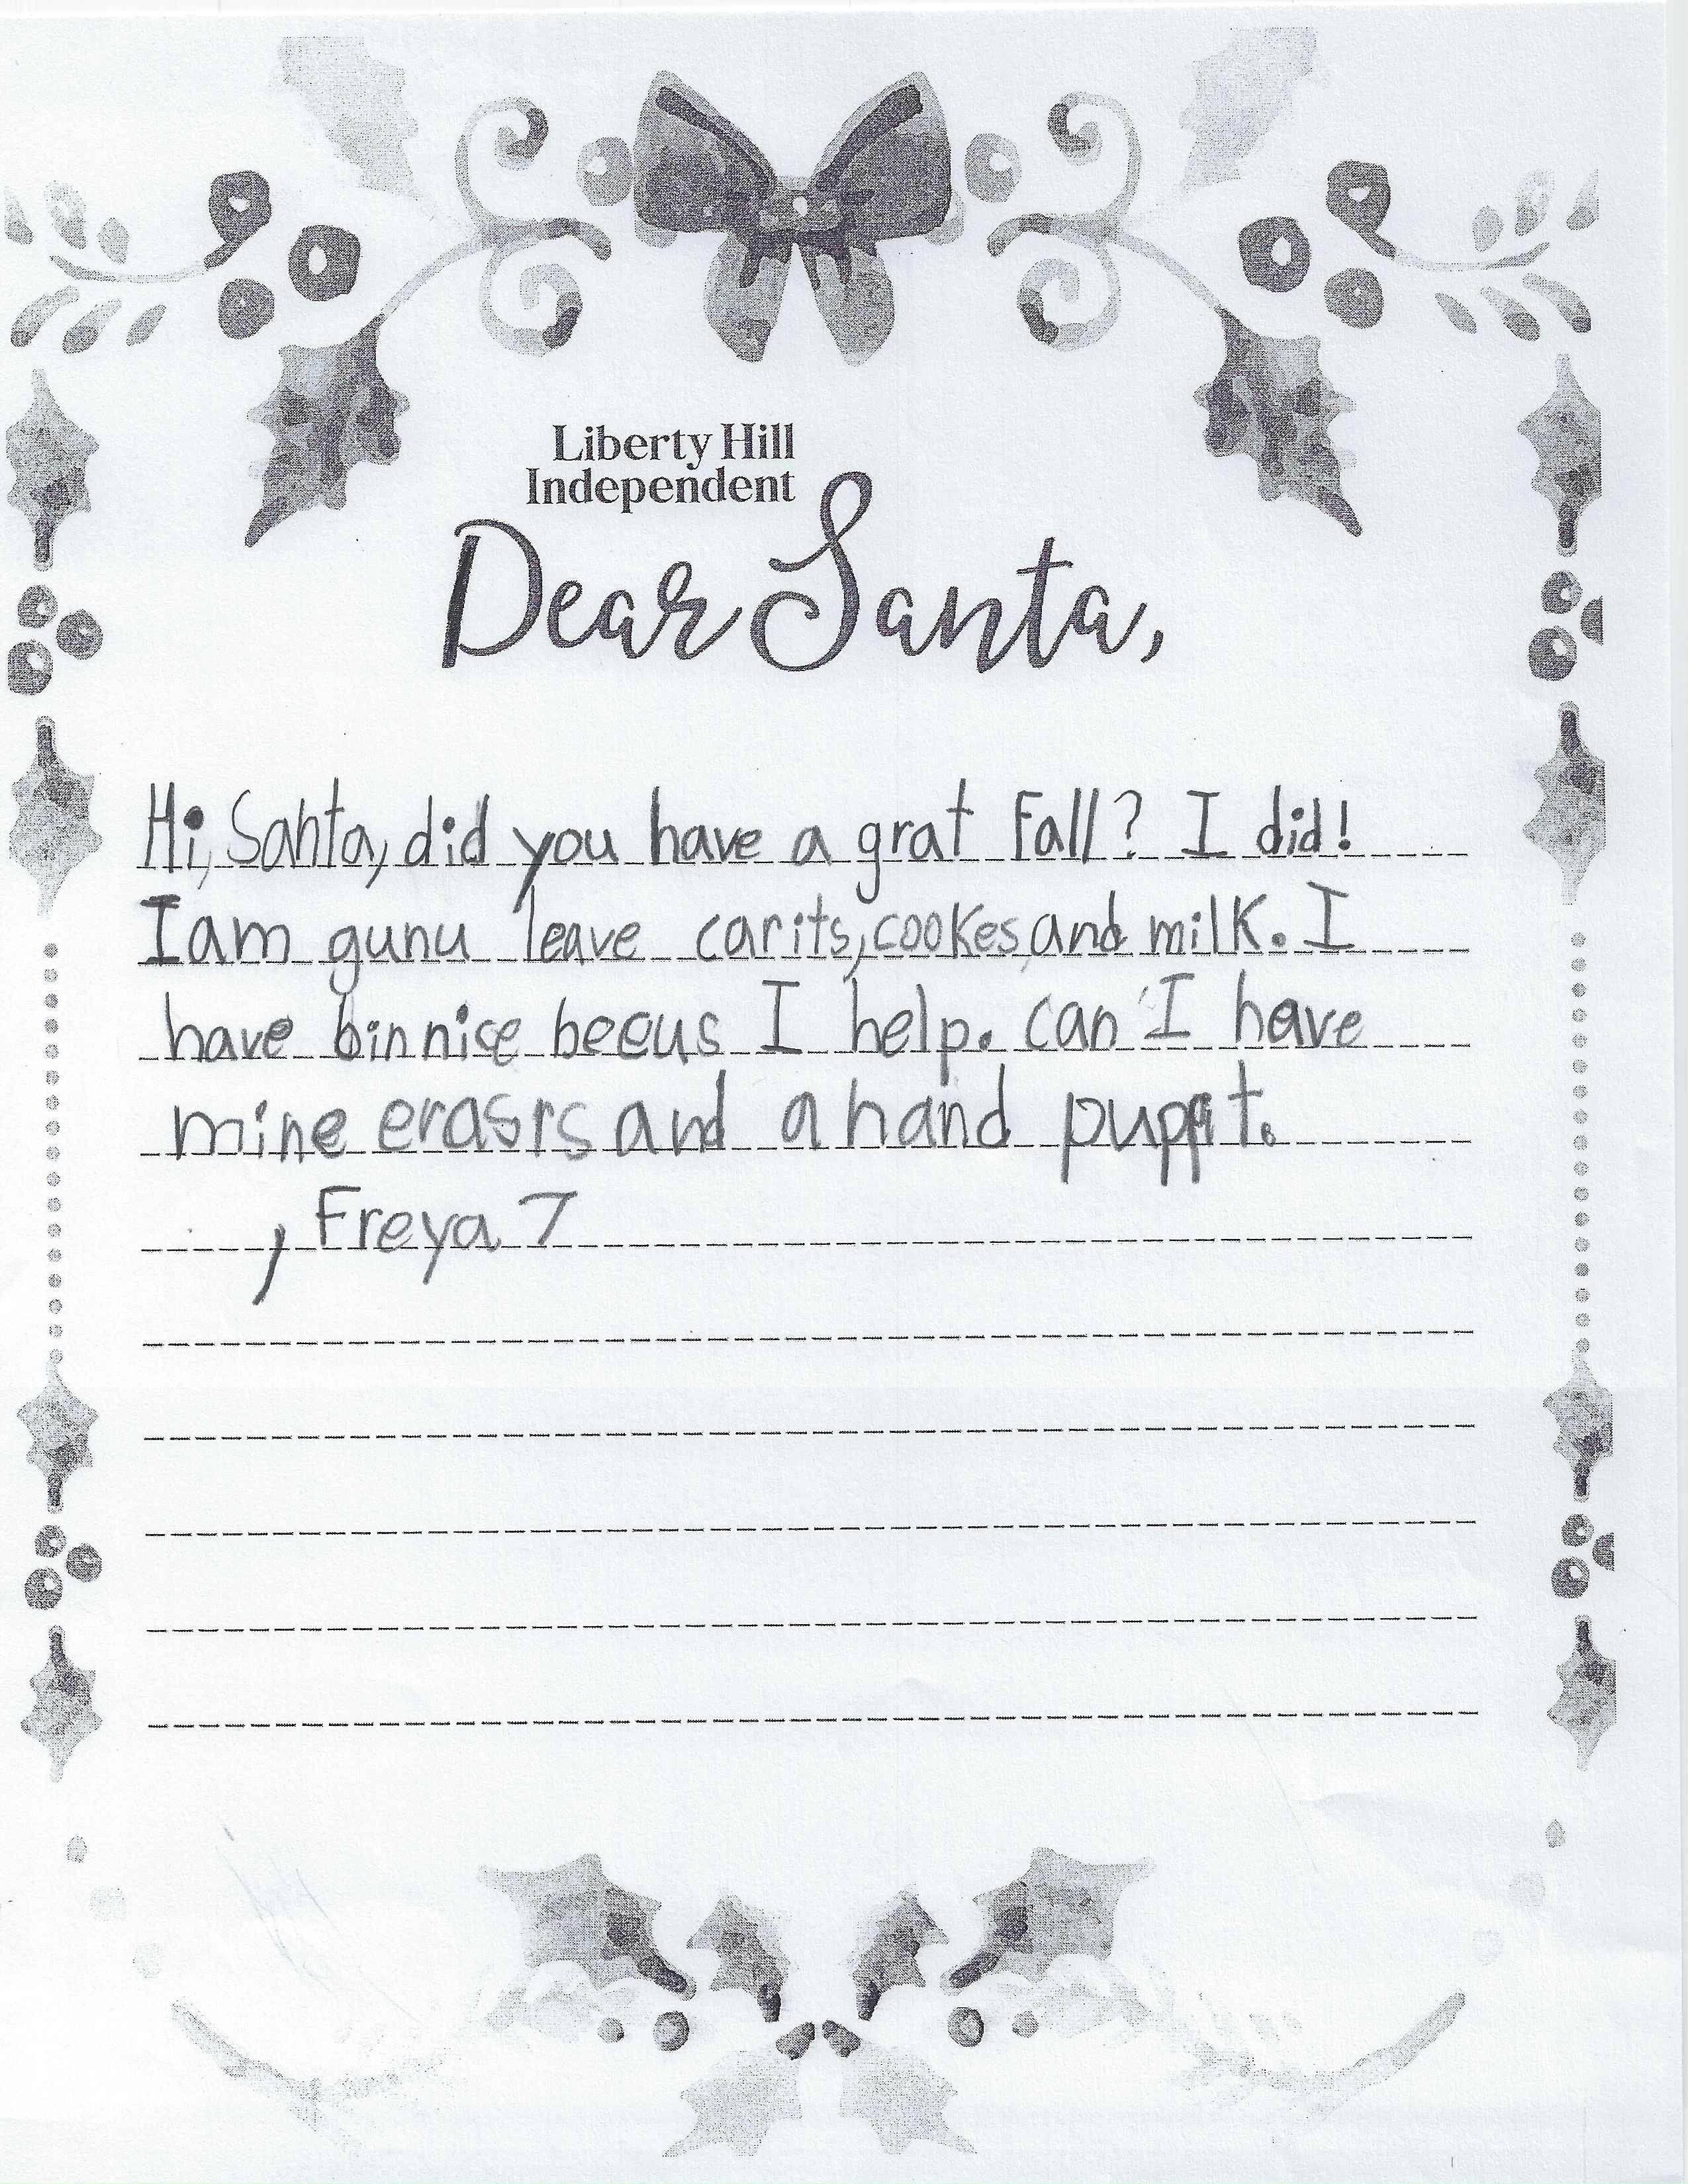 Liberty Hill
Independent
Dear Santa,
Hi, Santa, did you have a grat Fall? I did!
I am gunu leave carits, cookes, and milk. I
have bin nice becus I help. can I have
mine erasrs and a hand puppit.
, Freya 7